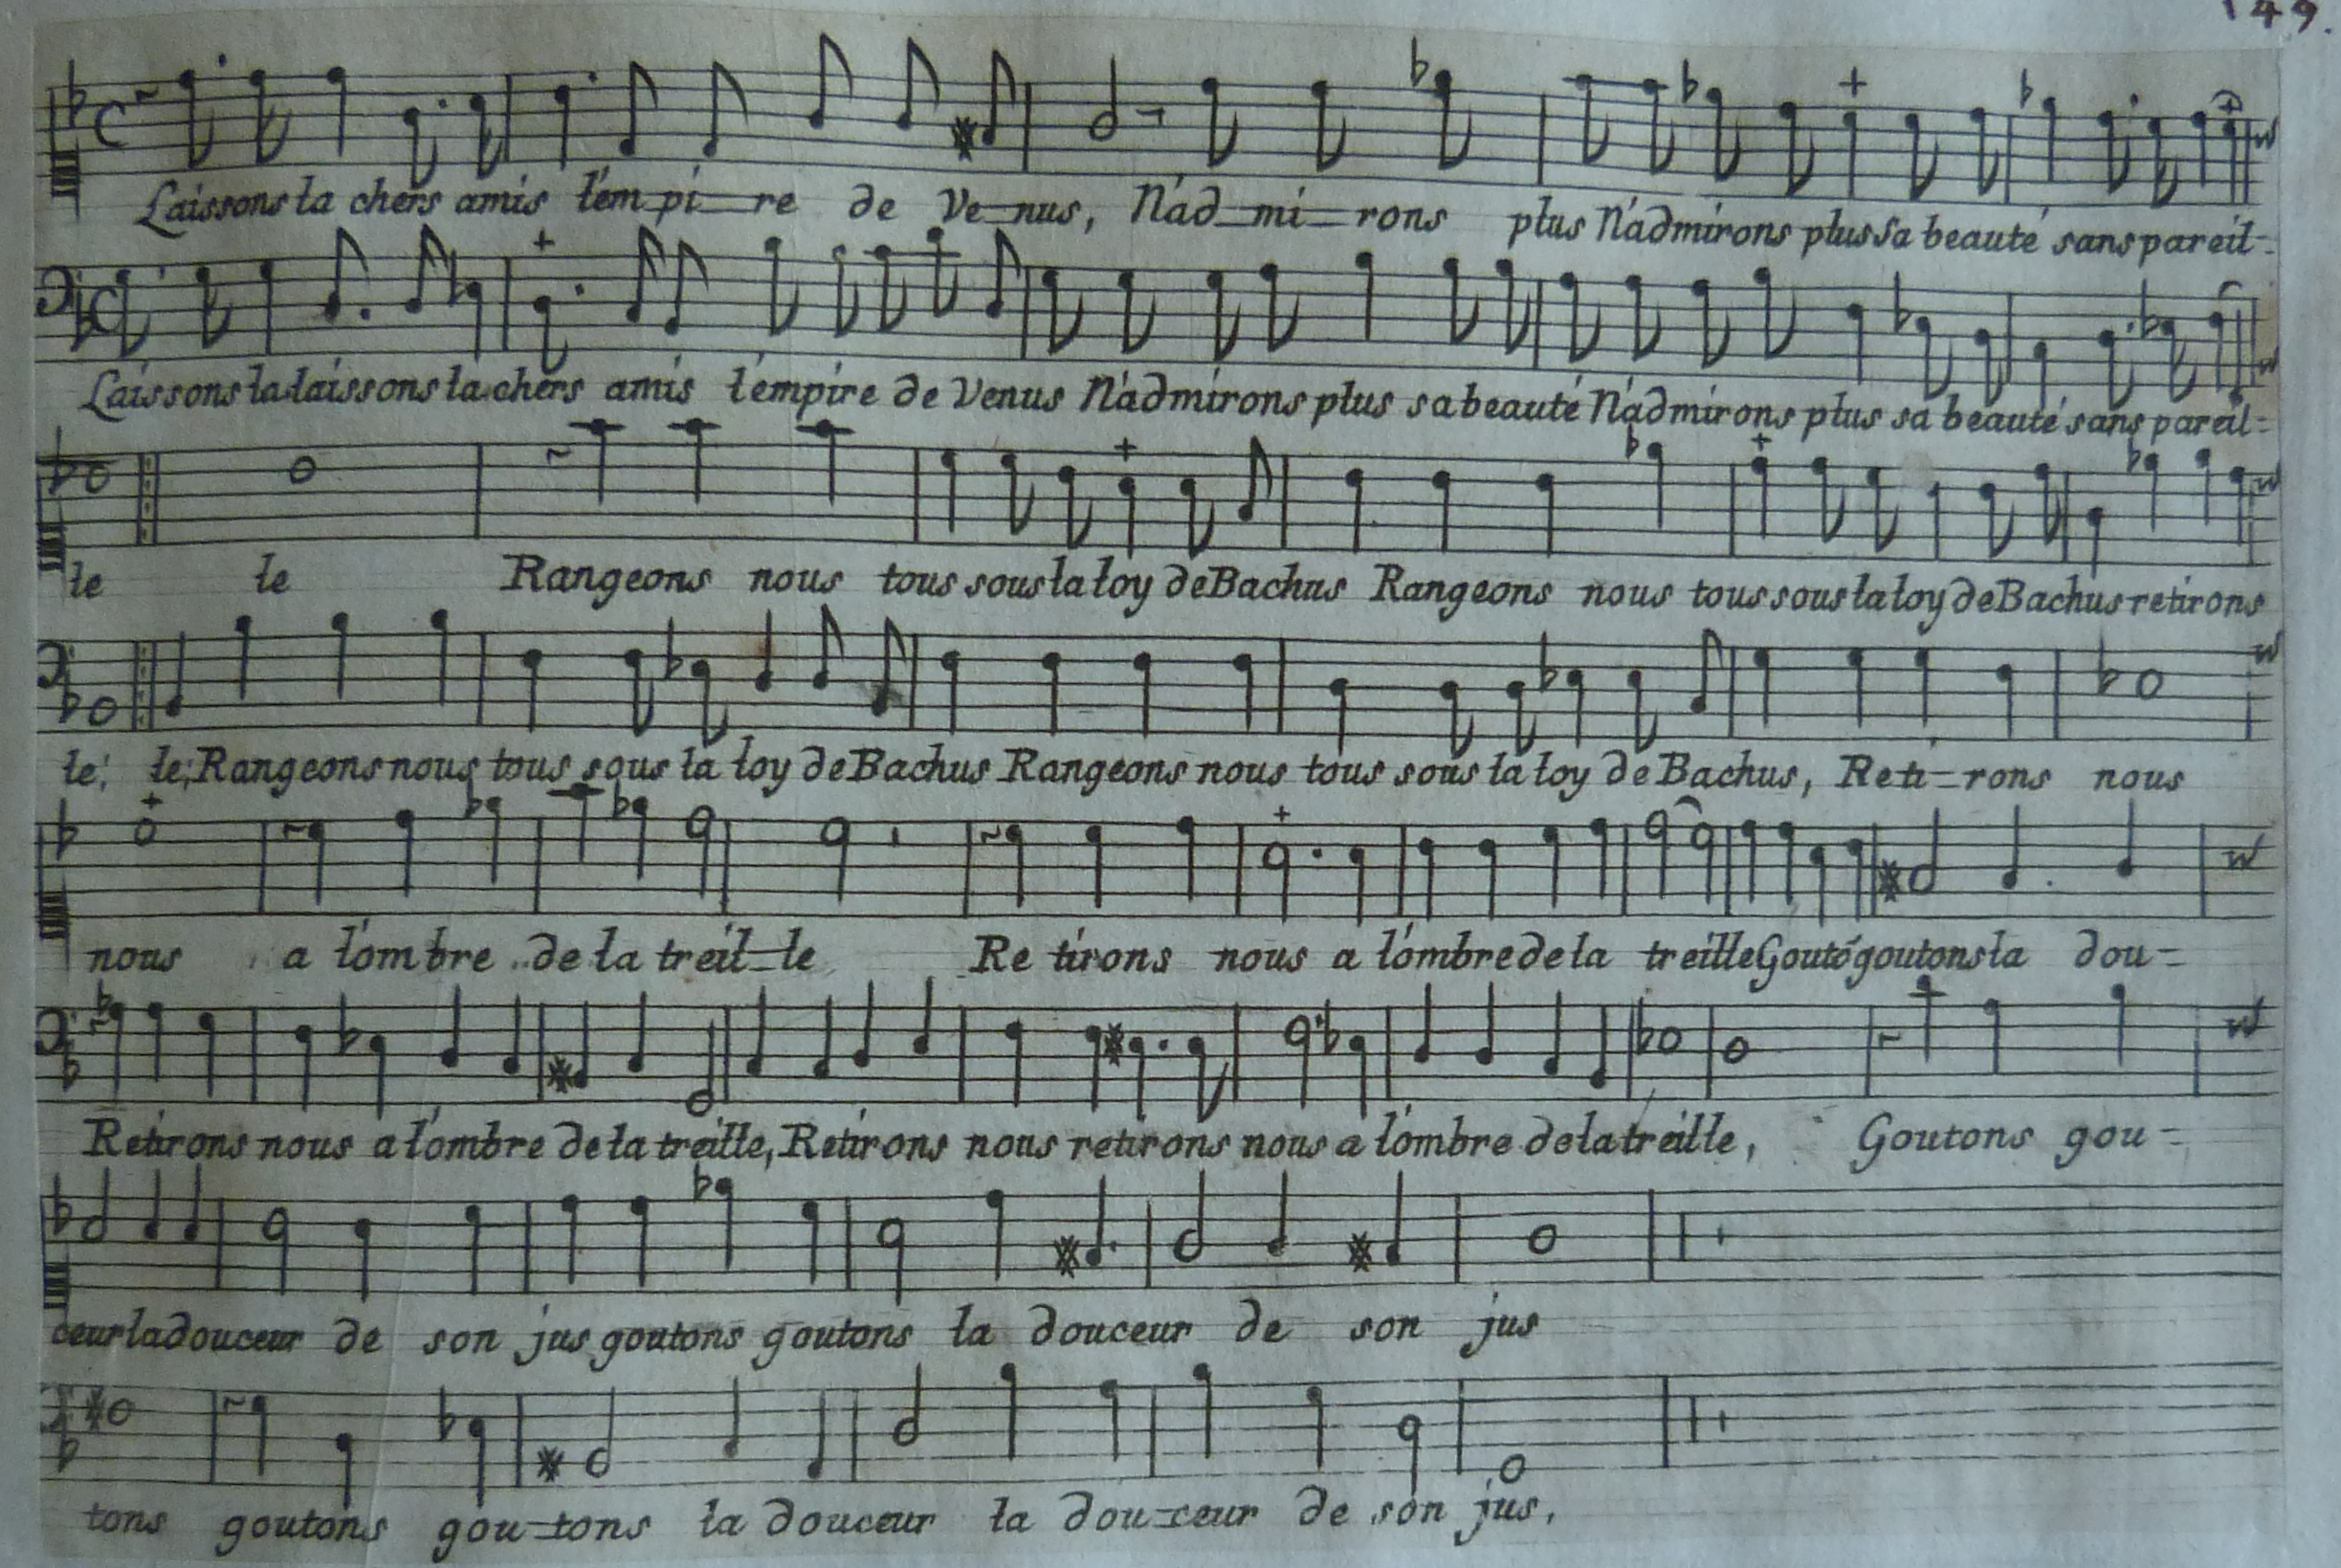 149.
Laissons la chers amis l'em-pi-re de Ve-nus, N'ad-mi-rons plus N'admirons plus sa beauté sans pareil-
Laissons la laissons la chers amis l'empire de Venus N'admirons plus sa beauté N'admirons plus sa beauté sans pareil-
le le Rangeons nous tous sous la loy de Bachus Rangeons nous tous sous la loy de Bachus retirons
le, le; Rangeons nous tous sous la loy de Bachus Rangeons nous tous sous la loy de Bachus, Reti-rons nous
nous a l'ombre de la treil-le Re tirons nous a l'ombre de la treille Goutõs goutons la dou-
Retirons nous a l'ombre de la treille, Retirons nous retirons nous a l'ombre de la treille, Goutons gou-
ceur la douceur de son jus goutons goutons la douceur de son jus
tons goutons gou-tons la douceur la dou-ceur de son jus,